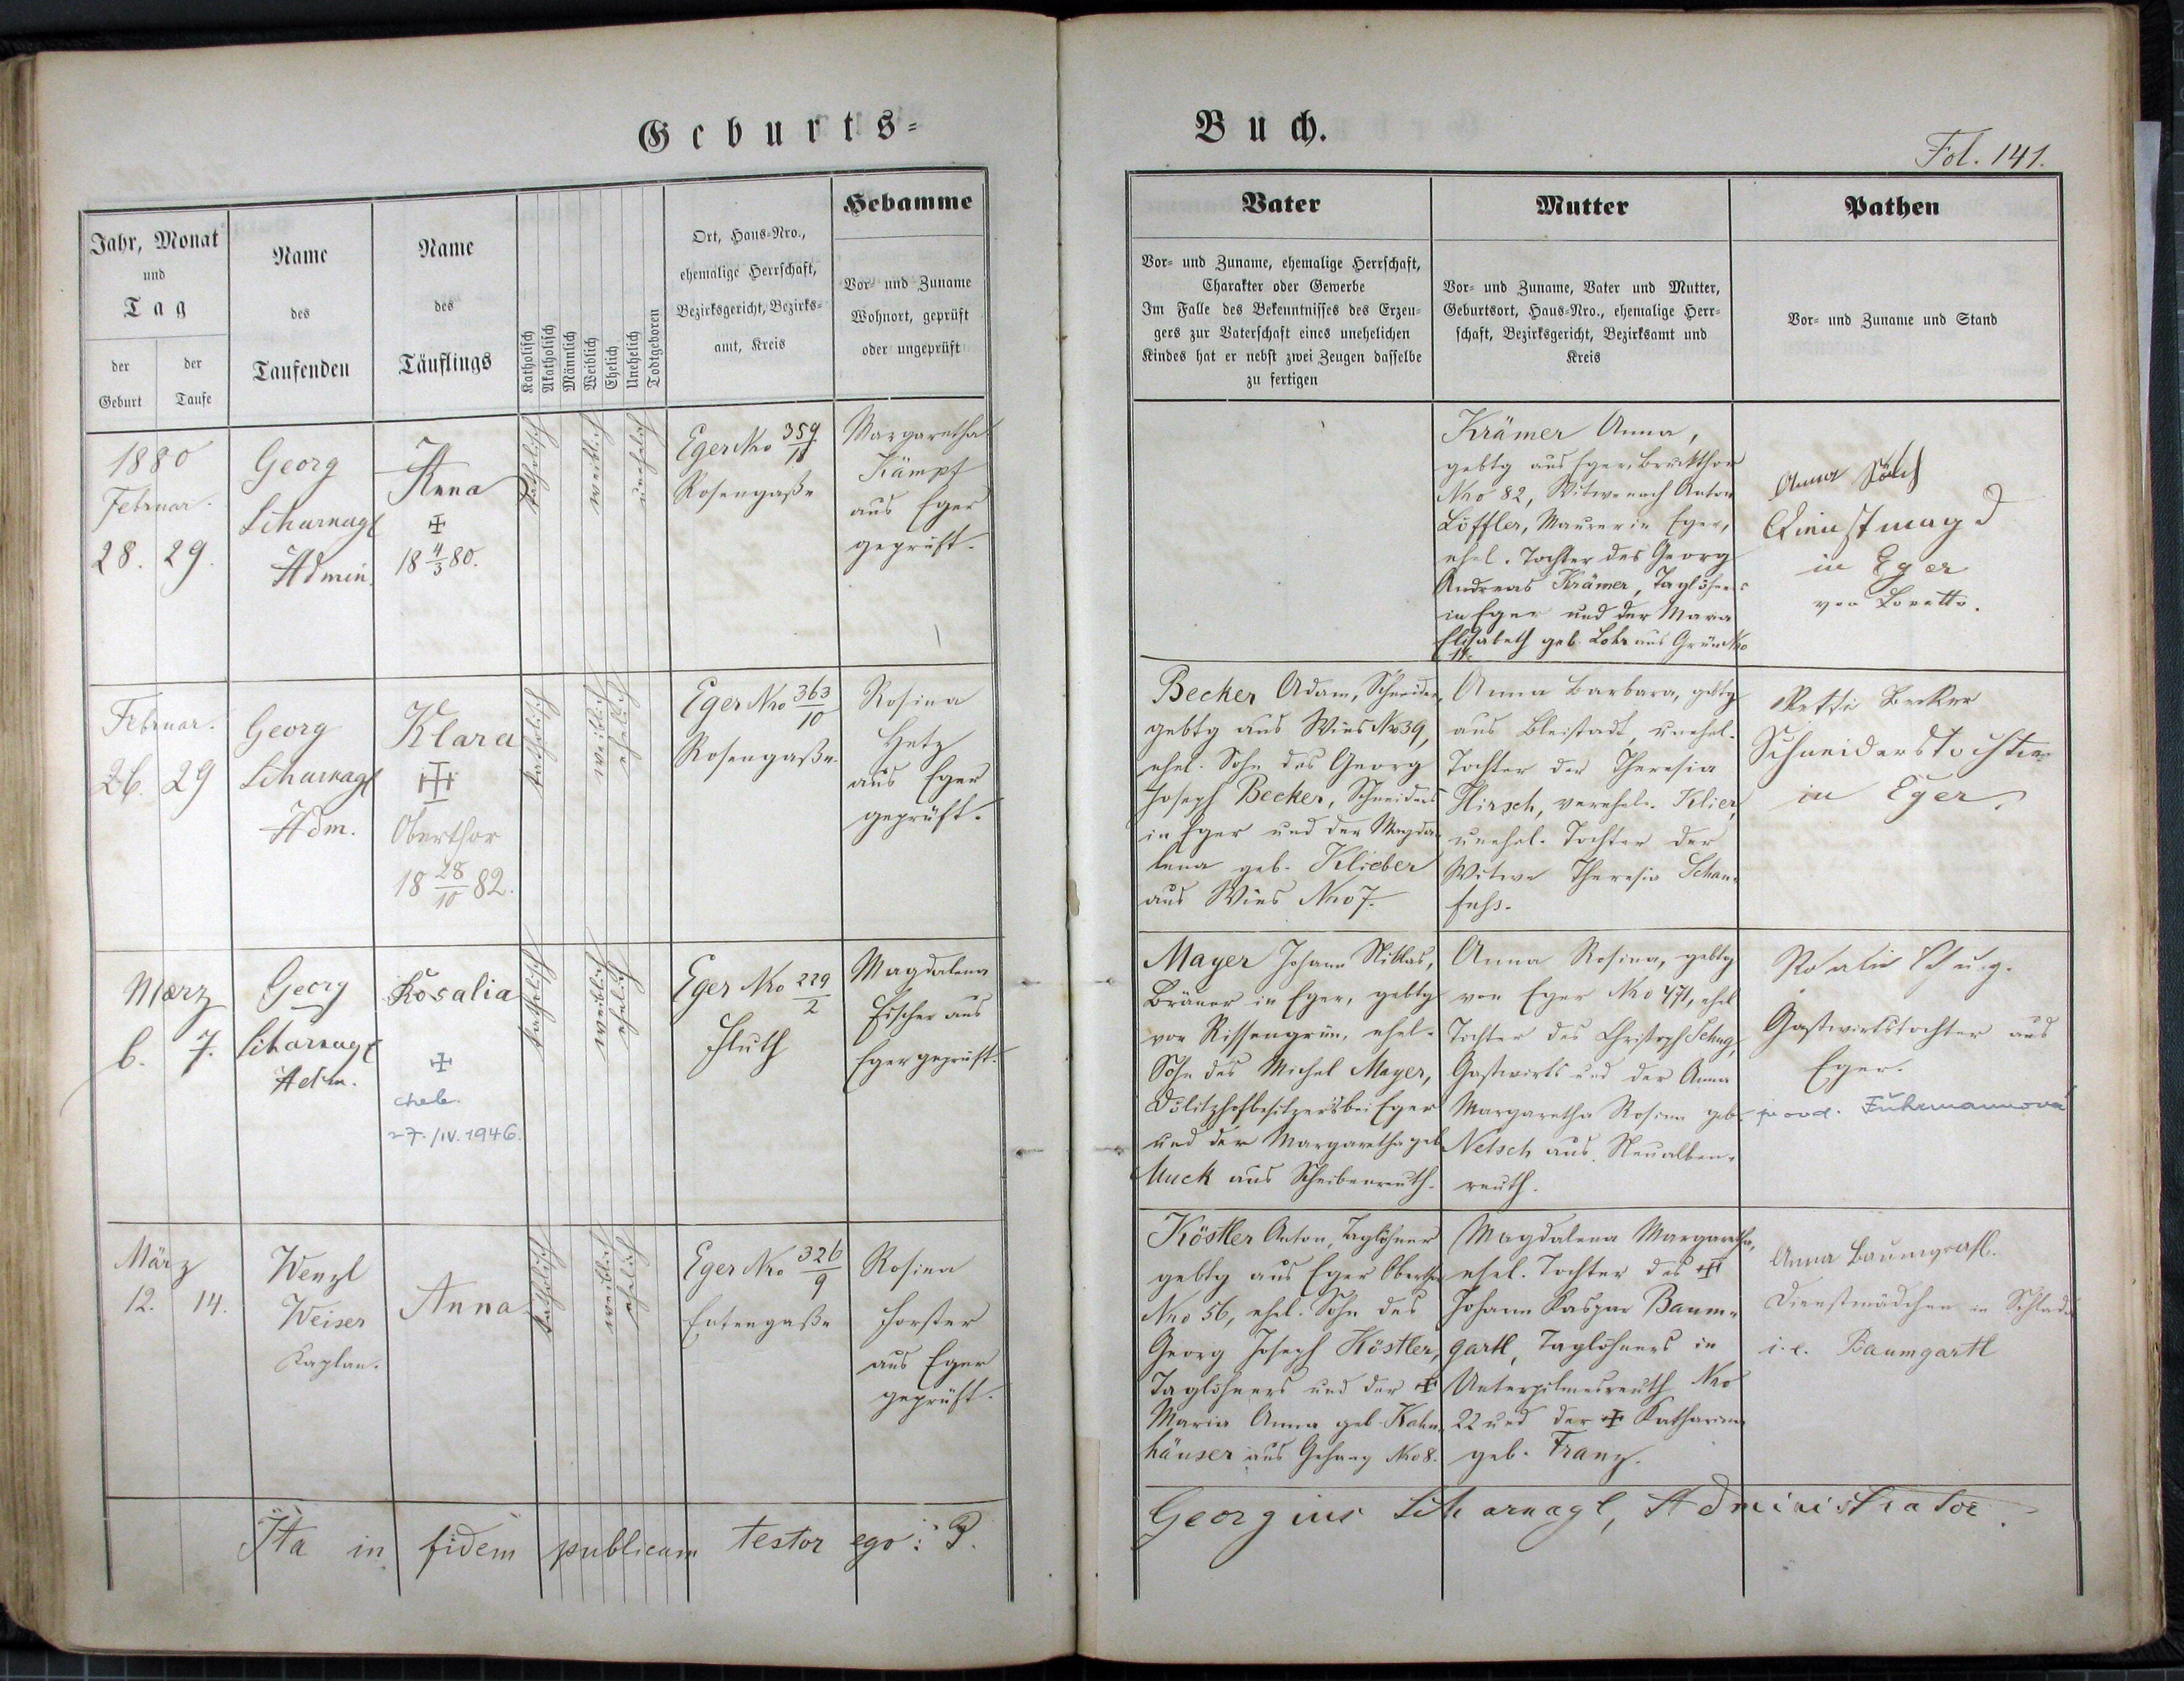 Geburts=
Buch.
Fol. 141.
Jahr, Monat
und
Tag
der
Geburt
der
Taufe
Name
des
Taufenden
Name
des
Täuflings
Katholisch
Akatholisch
Männlich
Weiblich
Ehelich
Unehelich
Todtgeboren
Ort, Haus-Nro.,
ehemalige Herrschaft,
Bezirksgericht, Bezirks-
amt, Kreis
Hebamme
Vor- und Zuname
Wohnort, geprüft
oder ungeprüft
Vater
Vor- und Zuname, ehemalige Herrschaft,
Charakter oder Gewerbe
Im Falle des Bekenntnisses des Erzeu-
gers zur Vaterschaft eines unehelichen
Kindes hat er nebst zwei Zeugen dasselbe
zu fertigen
Mutter
Vor- und Zuname, Vater und Mutter,
Geburtsort, Haus-Nro., ehemalige Herr-
schaft, Bezirksgericht, Bezirksamt und
Kreis
Pathen
Vor- und Zuname und Stand
1880
Februar.
28. 29.
Georg
Scharnagl
Admin.
Anna
✠
18 4/3 80.
katholisch
weiblich
unehelich
Eger Nro 359/
Rosengaße
Margaretha
Kämpf
aus Eger
geprüft.
Krämer Anna,
gebtg aus Eger, Bruckthor
Nro 82, Witwe nach Anton
Löffler, Maurer in Eger,
ehel. Tochter des Georg
Andreas Krämer, Taglöhners
in Eger und der Maria
Elisabeth geb. Lohr aus Grün Nro
11.
Anna
Dienstmagd
in Eger
von Loretto.
Februar.
26. 29
Georg
Scharnagl
Adm.
Klara
✠
Oberthor
18 28/10 82.
katholisch
weiblich
ehelich
Eger Nro 363/10
Rosengaße.
Rosina
Hetz
aus Eger
geprüft.
Becker Adam, Schneider,
gebtg aus Wies Nro 39,
ehel. Sohn des Georg
Joseph Becker, Schneiders
in Eger und der Magda-
lena geb. Klieber
aus Wies Nro 7.
Anna Barbara, gebtg
aus Bleistadt, unehel.
Tochter der Theresia
Hirsch, verehel. Klier,
unehel. Tochter der
Witwe Theresia Schan-
Betti Becker
Schneiderstochter
in Eger.
Maerz
6. 7.
Georg
Scharnagl
Adm.
Rosalia
✠
Cheb.
27./IV.1946.
katholisch
weiblich
ehelich
Eger Nro 229/2
Fluth
Magdalena
Fischer aus
Eger geprüft.
Mayer Johann Niklas,
Bräuer in Eger, gebtg
von Rissengrün, ehel.
Sohn des Michel Mayer,
Dölitzhofbesitzers bei Eger
und der Margaretha geb
Muck aus Scheibenreuth.
Anna Rosina, gebtg
von Eger Nro 471, ehel
Tochter des Christoph Schug,
Gastwirts und der Anna
Margaretha Rosina geb.
Netsch aus Neualben-
reuth.
Rosalie Schug.
Gastwirtstochter aus
Eger.
provd. Fuhrmannová
März
12. 14.
Wenzl
Weiser
Kaplan.
Anna
katholisch
weiblich
ehelich
Eger Nro 326/9
Entengaße
Rosina
Forster
aus Eger
geprüft.
Köstler Anton, Taglöhner
gebtg aus Eger Oberthor
Nro 56, ehel. Sohn des
Georg Joseph Köstler,
Taglöhners und der ✠
Maria Anna geb. Kahn-
häuser aus Gehaag Nro 8.
Magdalena Margaretha,
ehel. Tochter des ✠
Johann Kaspar Baum-
gartl, Taglöhners in
Unterpilmersreuth Nro
22 und der ✠ Katharina
geb. Franz.
Anna Baumgartl.
Dienstmädchen in Schlada
i.e. Baumgartl
Ita in fidem publicam testor ego: P.
Georgius Scharnagl, Administrator.